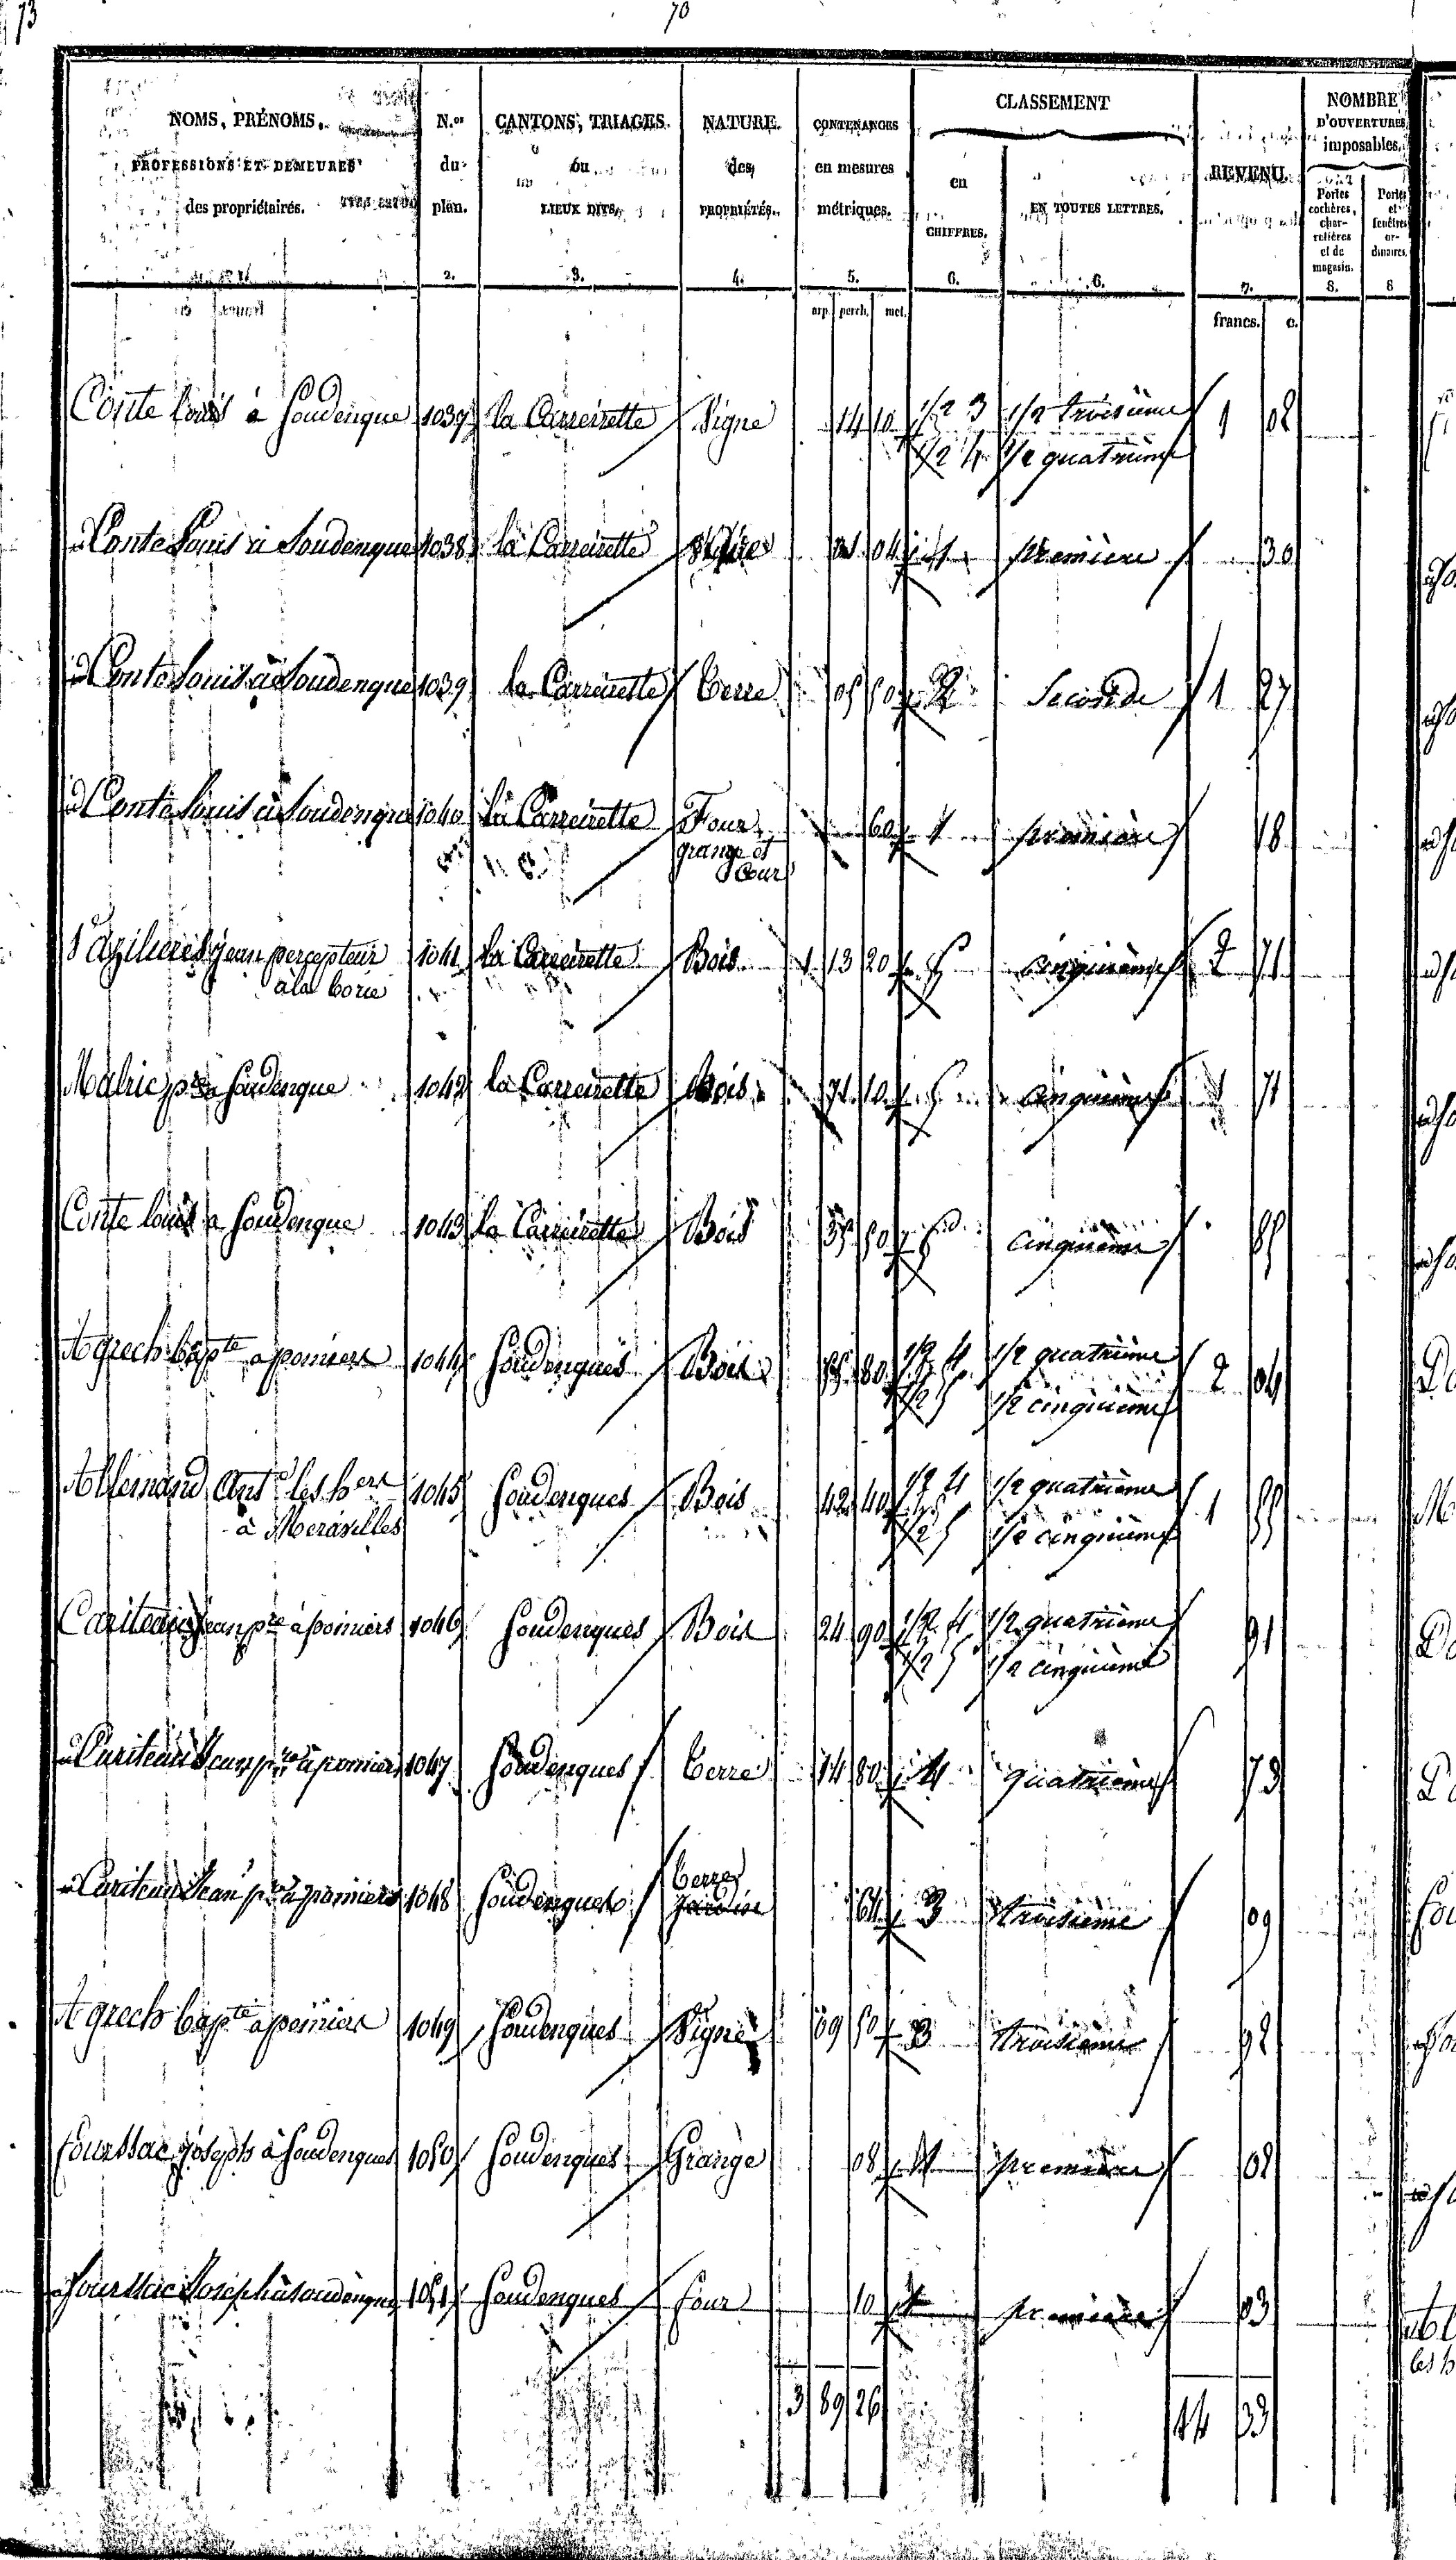 73
70
NOMS, PRÉNOMS,
PROFESSIONS ET DEMEURES
des propriétaires.
N.os
du
plan.
2.
CANTONS, TRIAGES
ou
LIEUX DITS,
3.
NATURE
des
PROPRIÉTÉS.
4.
CONTENANCES
en mesures
métriques.
5.
CLASSEMENT
en
CHIFFRES.
6.
EN TOUTES LETTRES.
6.
REVENU.
7.
NOMBRE
D'OUVERTURES
imposables.
Portes
cochères,
char-
retières
et de
magasin.
8.
Portes
et
fenêtres
or-
dinaires.
8
arp. perch. met.
francs. c.
Conte louis à Soudenque 1037 la Carreirette Vigne 14 10 1/2 3 1/2 troisième 1 02
1/2 4 1/2 quatrième
Conte Louis à Soudenque 1038 la Carreirette 01 04 1 première 30
Conte Louis à Soudenque 1039 la Carreirette Terre 05 50 2 Seconde 1 27
Conte Louis à Soudenque 1040 la Carreirette Four, 60 1 première 18
grange et
Cour
jean percepteur 1041 la Carreirette Bois 1 13 20 5 cinquième 2 71
à la borie
Malric pre à Soudenque 1042 la Carreirette Bois 71 10 5 cinquième 1 71
Conte louis a Soudenque 1043 la Carreirette Bois 35 50 5 cinquième 85
Agrech bapte a pomiers 1044 Soudenques Bois 55 80 1/2 4 1/2 quatrième 2 04
1/2 5 1/2 cinquième
Allemand Ant les hers 1045 Soudenques Bois 42 40 1/2 4 1/2 quatrième 1 55
à Meravilles 1/2 5 1/2 cinquième
Cariteau jean pre à pomiers 1046 Soudenques Bois 24 90 1/2 4 1/2 quatrième 91
1/2 5 1/2 cinquième
Cariteau Jean pre à pomiers 1047 Soudenques Terre 14 80 4 quatrième 73
Cariteau Jean pre à pomiers 1048 Soudenques Terre
Jardin 64 3 troisième 09
Agrech bapte a pomiers 1049 Soudenques Vigne 09 50 3 troisième 92
Fourssac joseph à Soudenques 1050 Soudenques Grange 08 1 première 02
Fourssac Joseph à Soudenques 1051 Soudenques four 10 1 première 03
3 89 26
14 33